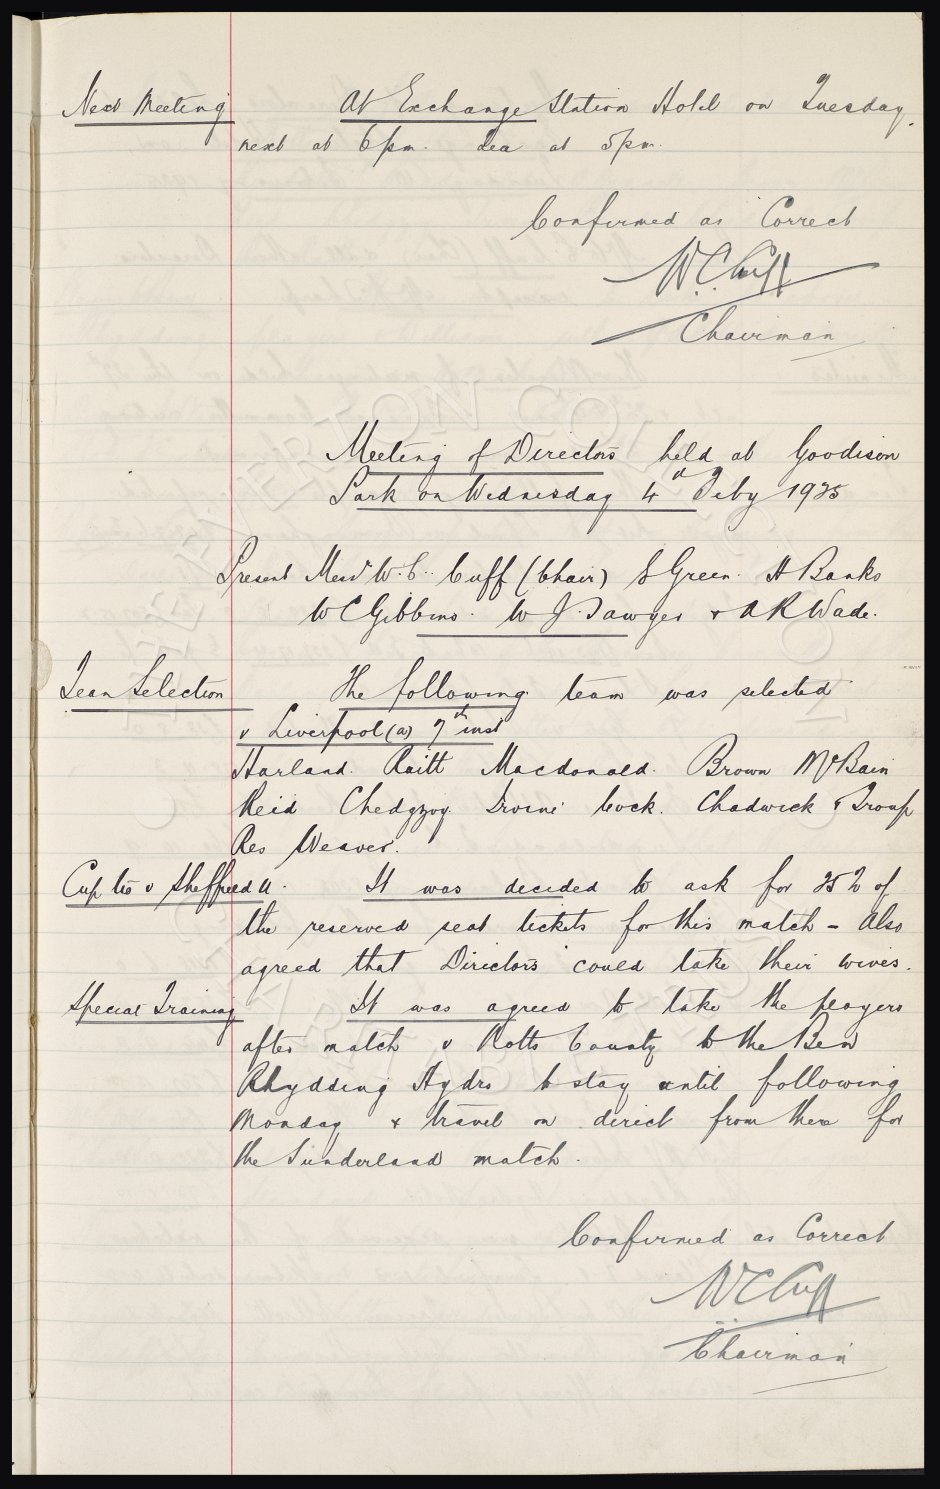 Next Meeting At Exchange Station Hotel on Tuesday
next at 6pm. Tea at 5pm.
Confirmed as Correct
W.C. Cuff
Chairman
Meeting of Directors held at Goodison
Park on Wednesday 4th Feby 1925
Present Messrs W. C. Cuff (Chair) E Green. H Banks
W C Gibbins. W J Sawyer & A R Wade.
Team Selection The following team was selected
v Liverpool (a) 7th inst
Harland. Raitt Macdonald. Brown McBain
Reid Chedgzoy Irvine Cock. Chadwick & Troup
Res Weaver.
Cup tie v Sheffield U. It was decided to ask for 25% of
the reserved seat tickets for this match - Also
agreed that Directors could take their wives.
Special Training It was agreed to take the players
after match v Notts County to the Ben
Rhydding Hydro to stay until following
Monday & travel on direct from there for
the Sunderland match.
Confirmed as Correct
W.C. Cuff
Chairman